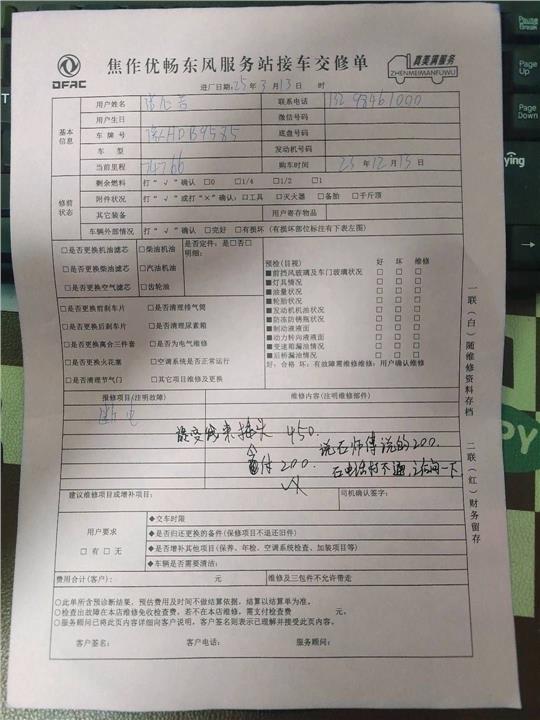 DFAC
焦作优畅东风服务站接车交修单
真美满服务
ZHENMEIMANFUWU
进厂日期:25年3月13日 时
基本信息
用户姓名 联系电话
用户生日 微信号码
车牌号 底盘号码
车型 发动机号码
当前里程 购车时间 23年12月15日
修前状态
剩余燃料 打“√”确认 □0 □1/4 □1/2 □1
附件状况 打“√”或打“×”确认:□工具 □灭火器 □备胎 □千斤顶
其它装备 用户寄存物品
车辆外部情况 打“√”确认 □完好 □有损坏(有损坏部位标注有下表左图)
□是否更换机油滤芯 □柴油机油 是否定件:是□否□
明细:
□是否更换柴油滤芯 □汽油机油
□是否更换空气滤芯 □齿轮油
预检(目视) 好 坏 维修
■前挡风玻璃及车门玻璃状况 □ □ □
■灯具情况 □ □ □
■油量状况 □ □ □
■轮胎状况 □ □ □
■发动机机油状况 □ □ □
■防冻防锈瓶状况 □ □ □
■制动液液面 □ □ □
■动力转向液液面 □ □ □
■变速箱漏油情况 □ □ □
■后桥漏油情况 □ □ □
好:合格 坏:有故障需维修维修:用户确认维修
□是否更换前刹车片 □是否清理排气筒
□是否更换后刹车片 □是否清理尿素箱
□是否更换离合三件套 □是否为电气维修
□是否更换火花塞 □空调系统是否正常运行
□是否清理节气门 □其它项目维修及更换
报修项目(注明故障) 维修内容(注明维修部件)
断电
线束接头 450.
付200. 说石师傅说的200.
石电话打不通,
建议维修项目或增补项目: 司机确认签字:
用户要求
□有 □无
◆交车时限
◆是否归还更换的备件(保修项目不退还旧件)
◆是否增补其他项目(保养、年检、空调系统检查、加装项目等)
◆车辆是否需要清洁:
费用合计(客户): 元 维修及三包件不允许带走
○此单所含预诊断结果,预估费用及时间不做结算依据,结算以结算单为准。
○检查出故障在本店维修免收检查费,若不在本店维修,需支付检查费 元。
○服务顾问已将此页内容详细向客户说明,客户签名则表示已理解并接受此页内容。
客户签名: 客户电话: 服务顾问:
一联(白)随维修资料存档
二联(红)财务留存
Pause
Break
Page
Up
Page
Down